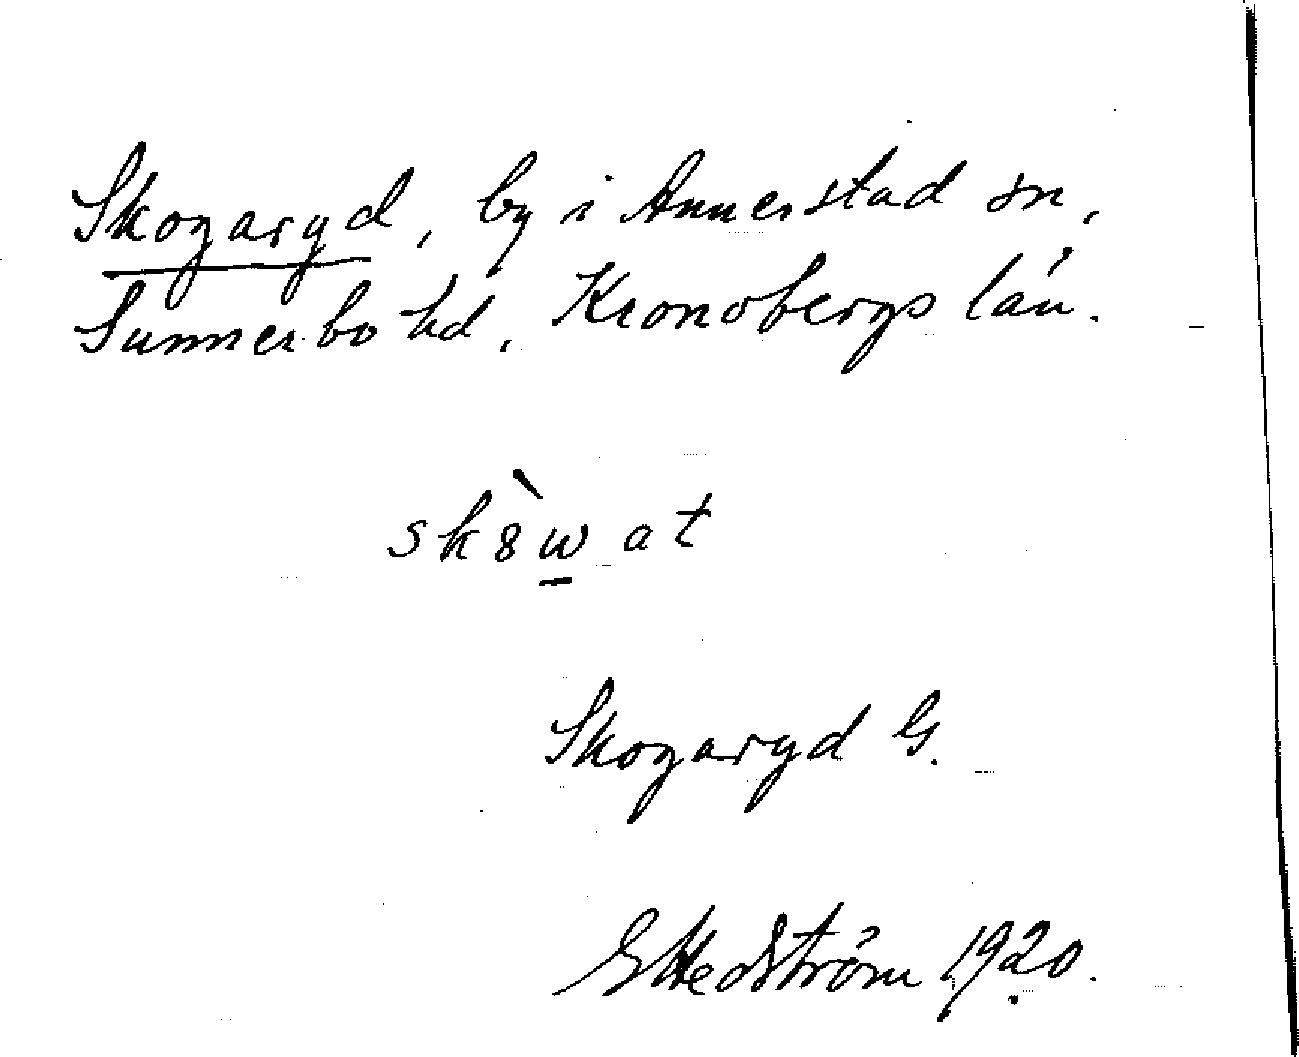 Skogaryd, by i Annerstad sn,
Sunnerbo hd, Kronobergs län.
sk8̀w̲at
Skogaryd G.
G Hedström 1920.